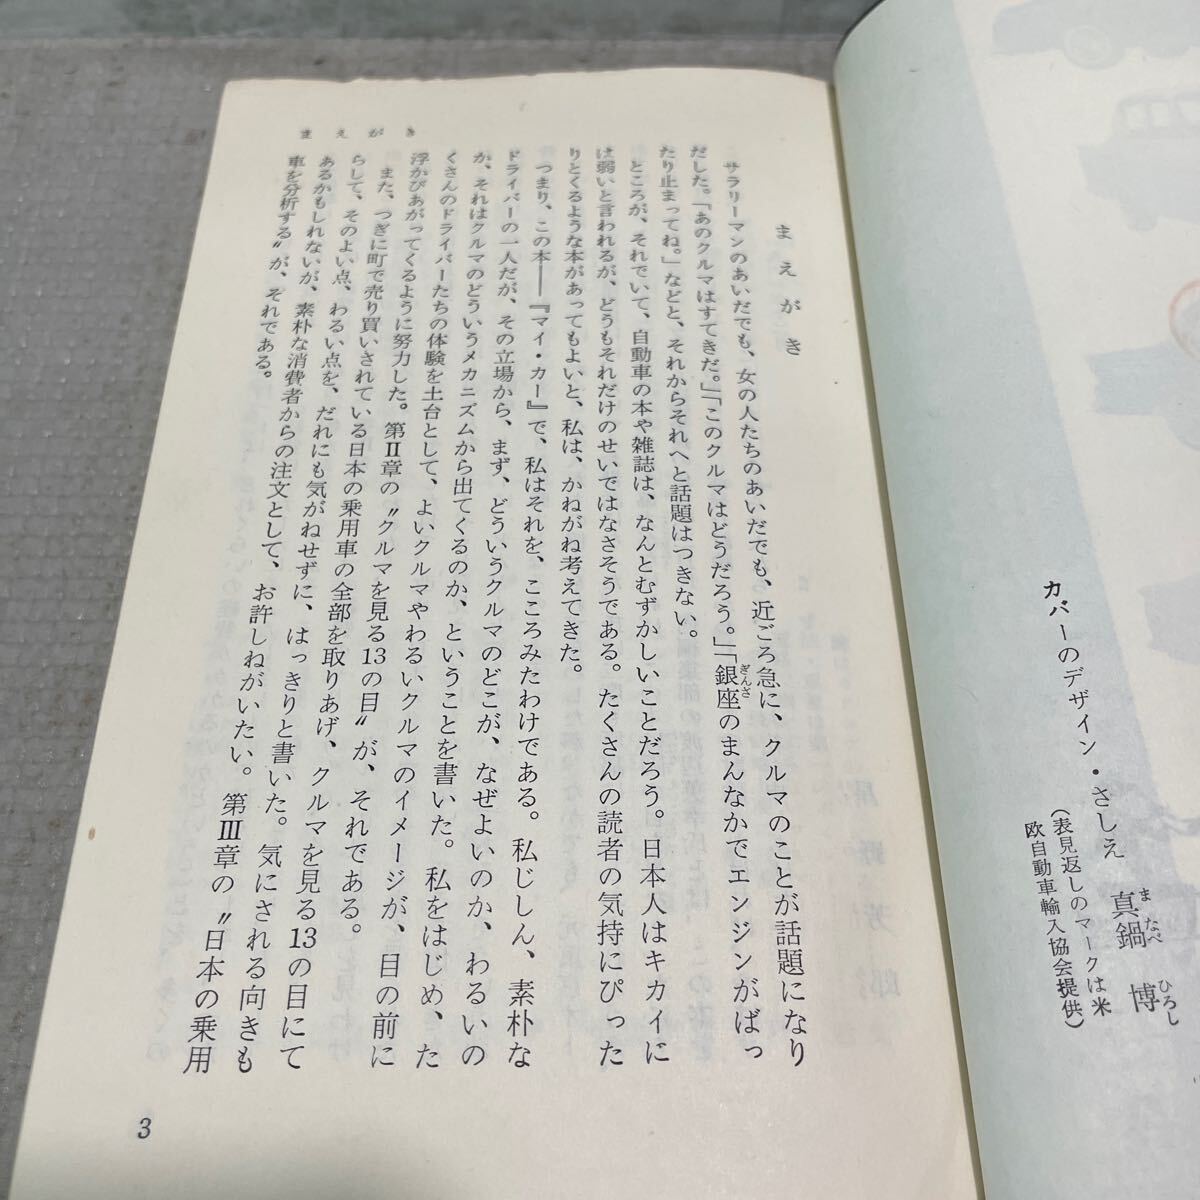 カバーのデザイン・さしえ　真鍋　博
まなべ　ひろし
(表見返しのマークは米
欧自動車輸入協会提供)
まえがき
まえがき
サラリーマンのあいだでも、女の人たちのあいだでも、近ごろ急に、クルマのことが話題になり
だした。「あのクルマはすてきだ。」「このクルマはどうだろう。」「銀座のまんなかでエンジンがばっ
ぎんざ
たり止まってね。」などと、それからそれへと話題はつきない。
ところが、それでいて、自動車の本や雑誌は、なんとむずかしいことだろう。日本人はキカイに
は弱いと言われるが、どうもそれだけのせいではなさそうである。たくさんの読者の気持にぴった
りとくるような本があってもよいと、私は、かねがね考えてきた。
つまり、この本――『マイ・カー』で、私はそれを、こころみたわけである。私じしん、素朴な
ドライバーの一人だが、その立場から、まず、どういうクルマのどこが、なぜよいのか、わるいの
か、それはクルマのどういうメカニズムから出てくるのか、ということを書いた。私をはじめ、た
くさんのドライバーたちの体験を土台として、よいクルマやわるいクルマのイメージが、目の前に
浮かびあがってくるように努力した。第Ⅱ章の〝クルマを見る13の目〟が、それである。
また、つぎに町で売り買いされている日本の乗用車の全部を取りあげ、クルマを見る13の目にて
らして、そのよい点、わるい点を、だれにも気がねせずに、はっきりと書いた。気にされる向きも
あるかもしれないが、素朴な消費者からの注文として、お許しねがいたい。第Ⅲ章の〝日本の乗用
車を分析する〟が、それである。
3